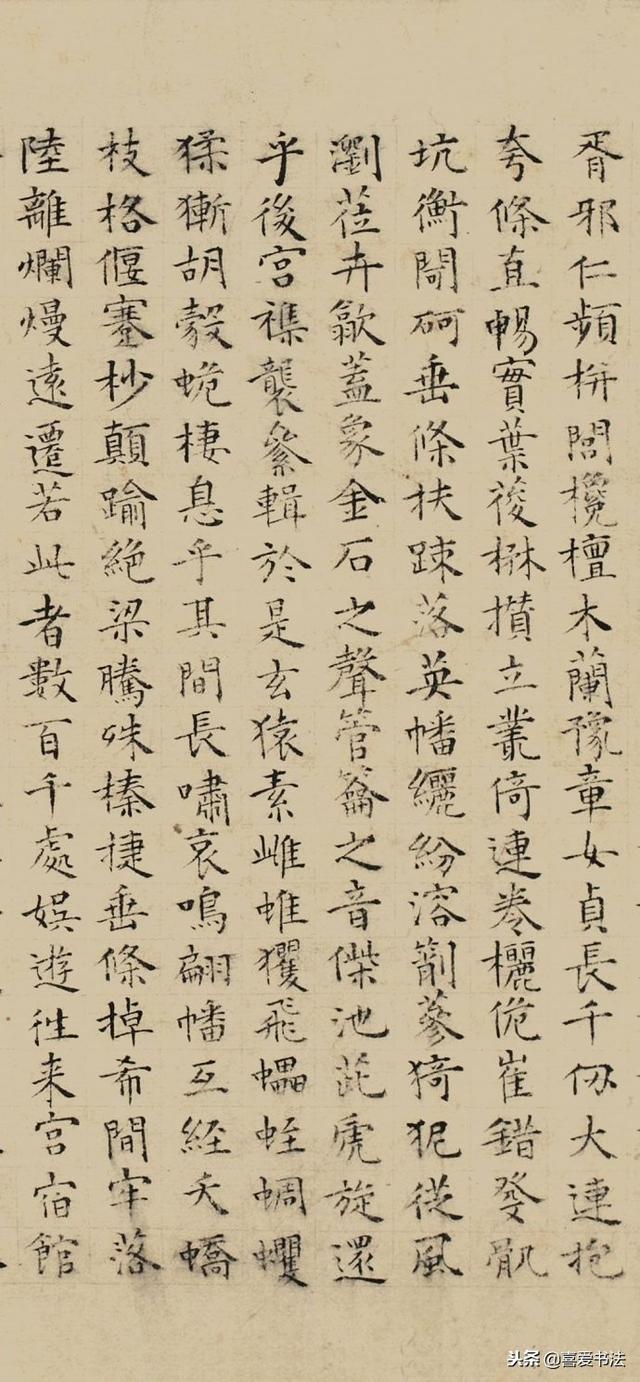 胥邪仁頻栟閭欃檀木蘭豫章女貞長千仞大連抱
夸條直暢實葉葰楙攢立叢倚連卷欐佹崔錯發骫
坑衡閜砢垂條扶疎落英幡纚紛溶箾蔘猗狔從風
瀏莅卉歙蓋象金石之聲管籥之音傑池茈虒旋還
乎後宮襍襲絫輯於是玄猿素雌蜼玃飛蠝蛭蜩蠼
猱獑胡豰蛫棲息乎其間長嘯哀鳴翩幡互經夭蟜
枝格偃蹇杪顛踰絶梁騰殊榛捷垂條掉希間牢落
陸離爛熳遠遷若此者數百千處娛遊往来宮宿館
头条 @喜爱书法